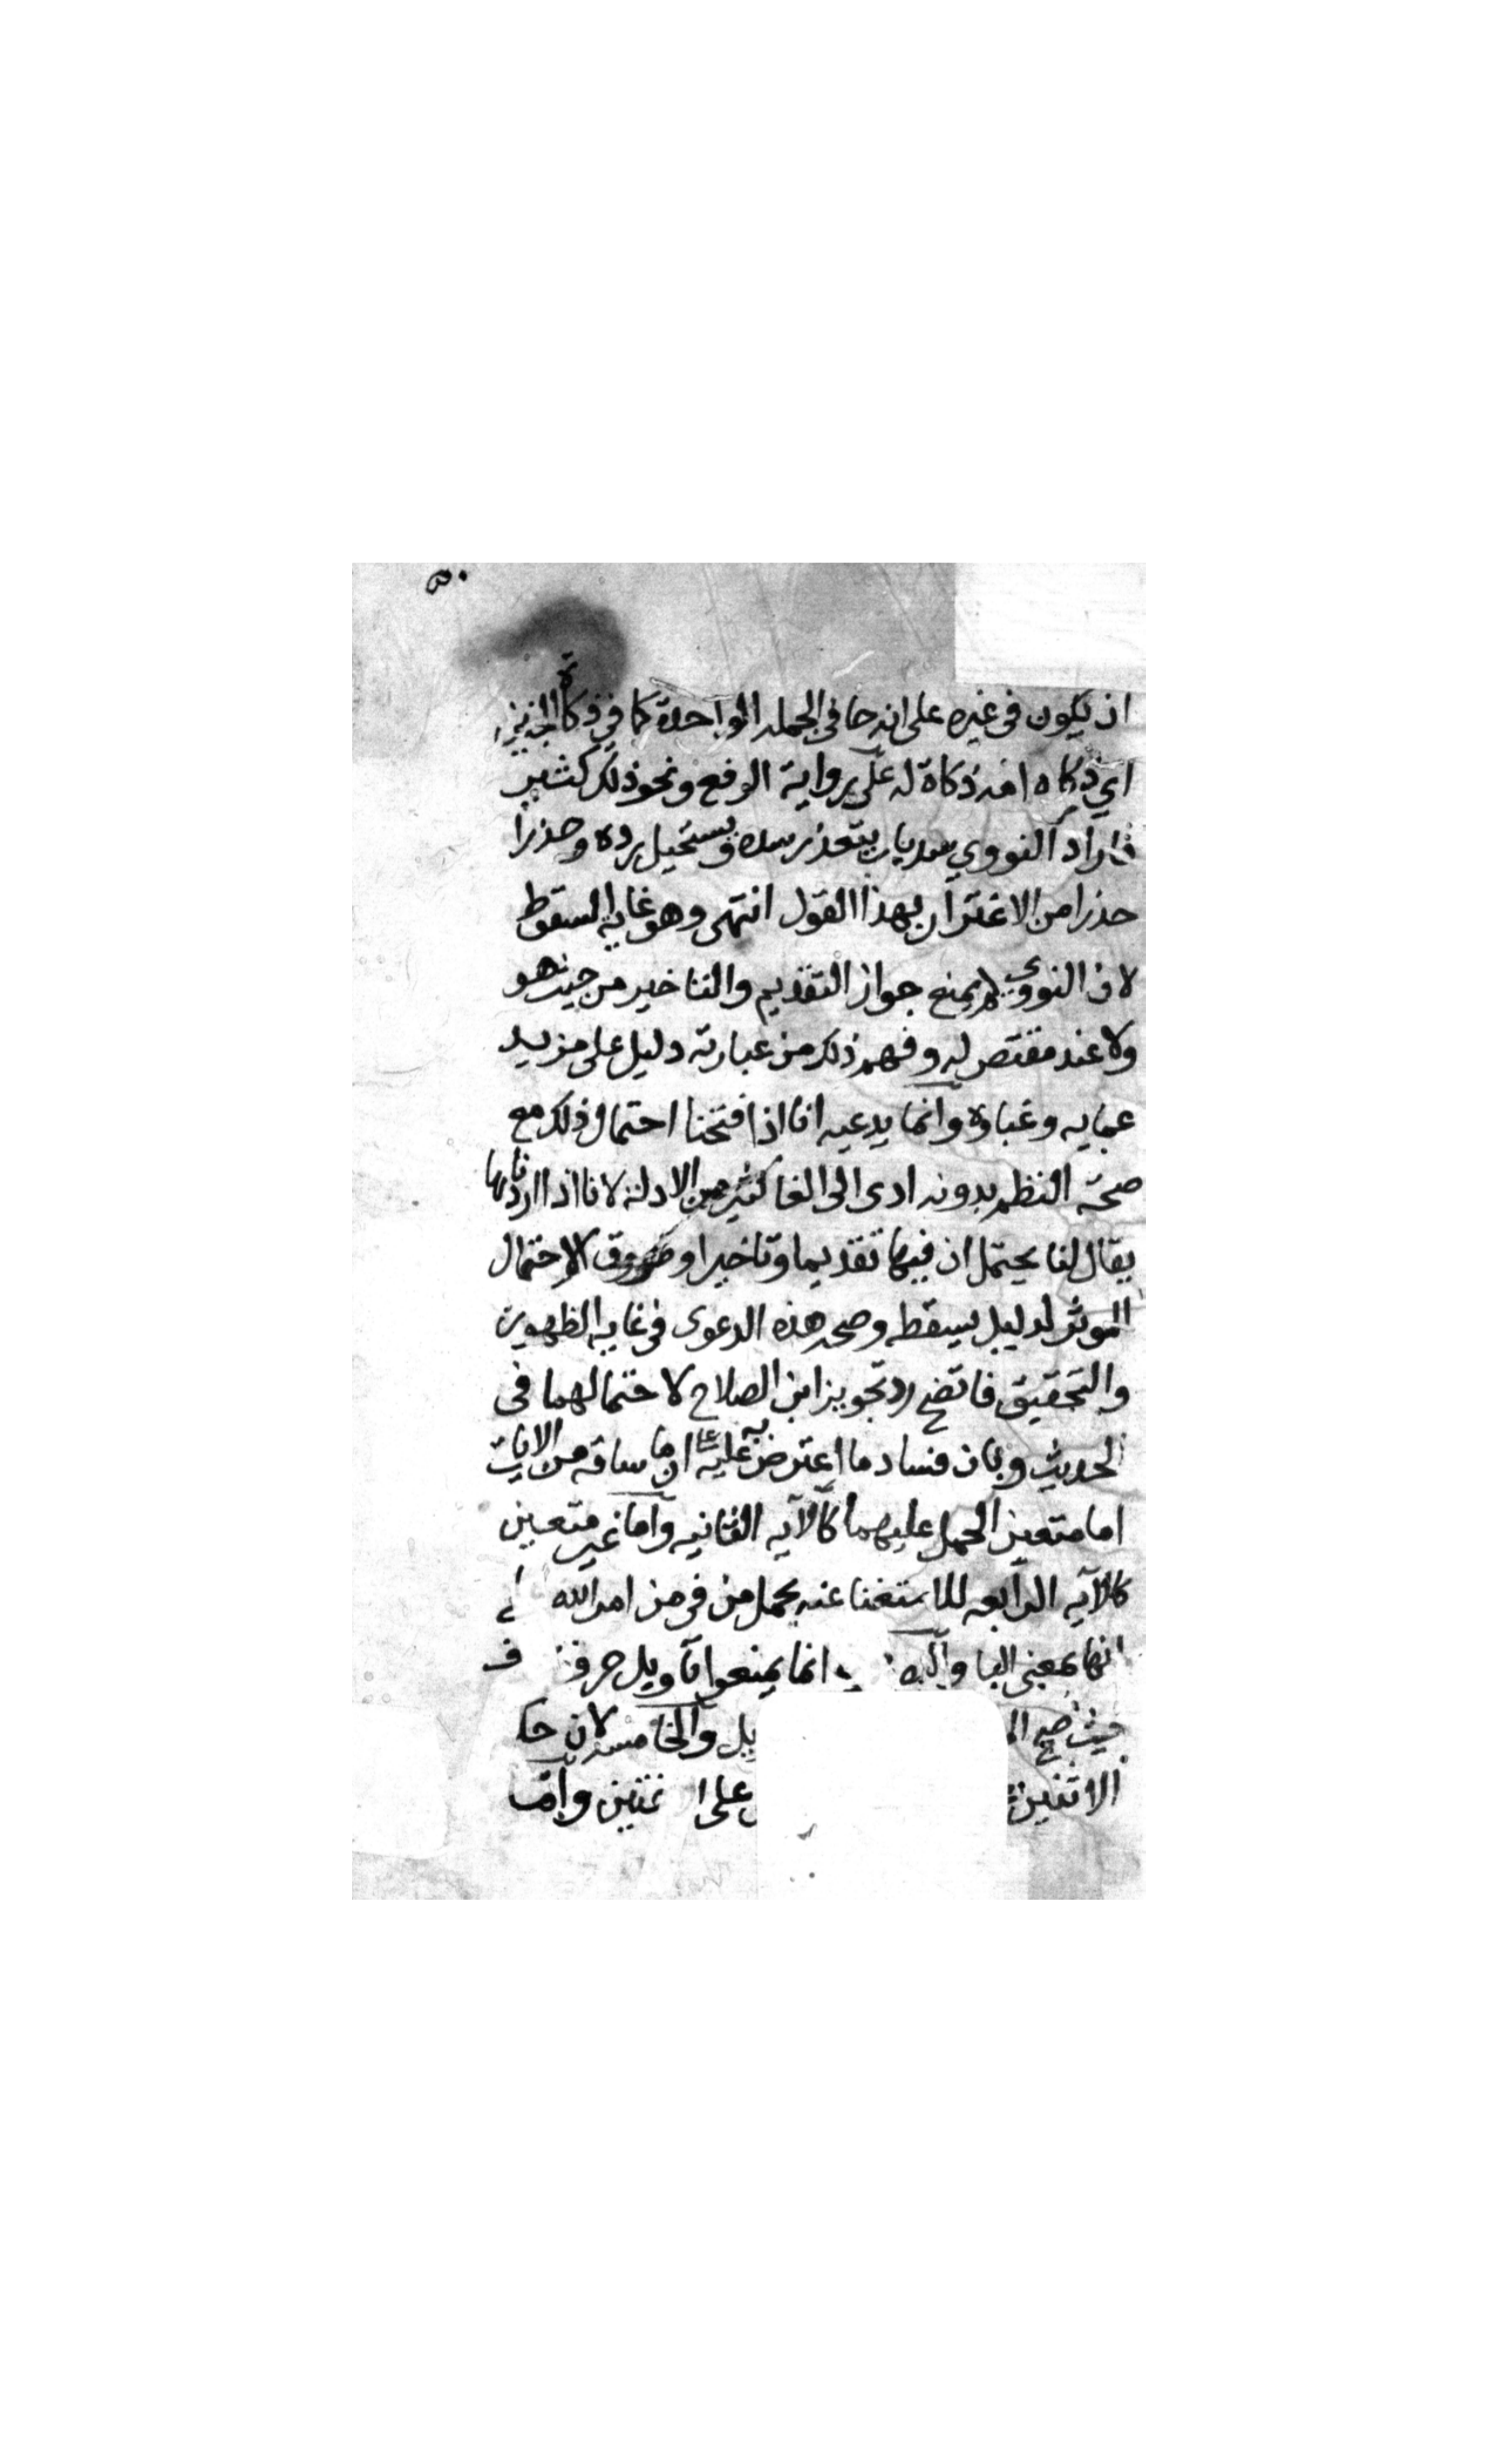 ان يكون فى غيره على انه جا فى الجمله الواحدة كما في ذكاة الجنين
اي ذكاه امه ذكاة له على رواية الرفع ونحو ذلك كثير
فاراد النووي سد باب يتعذر سده ويستحيل رده وحذرا
حذرا من الاغترار بهذا القول انتهى وهو غايه السقوط
لان النووي لم يمنع جواز التقديم والتاخير من حيث هو
ولا عند مقتص له وفهم ذلك من عبارته دليل على مزيد
عمايه وغباوة وانما يدعيه انا اذا فتحنا احتمال ذلك مع
صحة النظم بدونه ادى الى الغا كثير من الادلة لانا اذا اردنا
يقال لنا يحتمل ان فيها تقديما وتاخيرا وطروق الاحتمال
الموثر لدليل يسقطه وصحه هذه الدعوى فى غايه الظهور
والتحقيق فاتضح رد تجويز ابن الصلاح لاحتمالهما فى
الحديث وبان فساد ما اعترض به عليه على ان ما ساقه من الايات
اما متعين الحمل عليهما كالآيه الثانيه واما غير متعين
كالآيه الرابعه للاستغنا عنه بحمل من فى من امر الله
انها بمعنى البا انما يمنعوا تاويل حرف
حيث صح والخامسه لان
الاثنين على وا